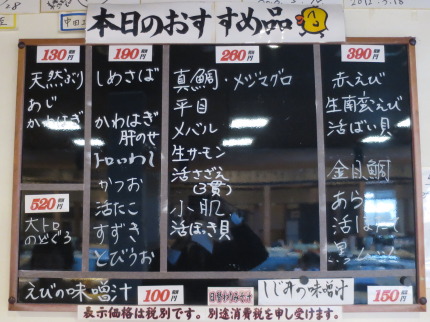 本日のおすすめ品
130円
天然ぶり
あじ
かわはぎ
520円
大トロ
のどぐろ
190円
しめさば
かわはぎ
肝のせ
トロいわし
かつお
活たこ
すずき
とびうお
260円
真鯛・メジマグロ
平目
メバル
生サーモン
活さざえ
小肌
活ほっき貝
390円
赤えび
生南蛮えび
活ばい貝
金目鯛
あら
えびの味噌汁
100円
日替わりみそ汁
しじみの味噌汁
150円
表示価格は税別です。別途消費税を申し受けます。